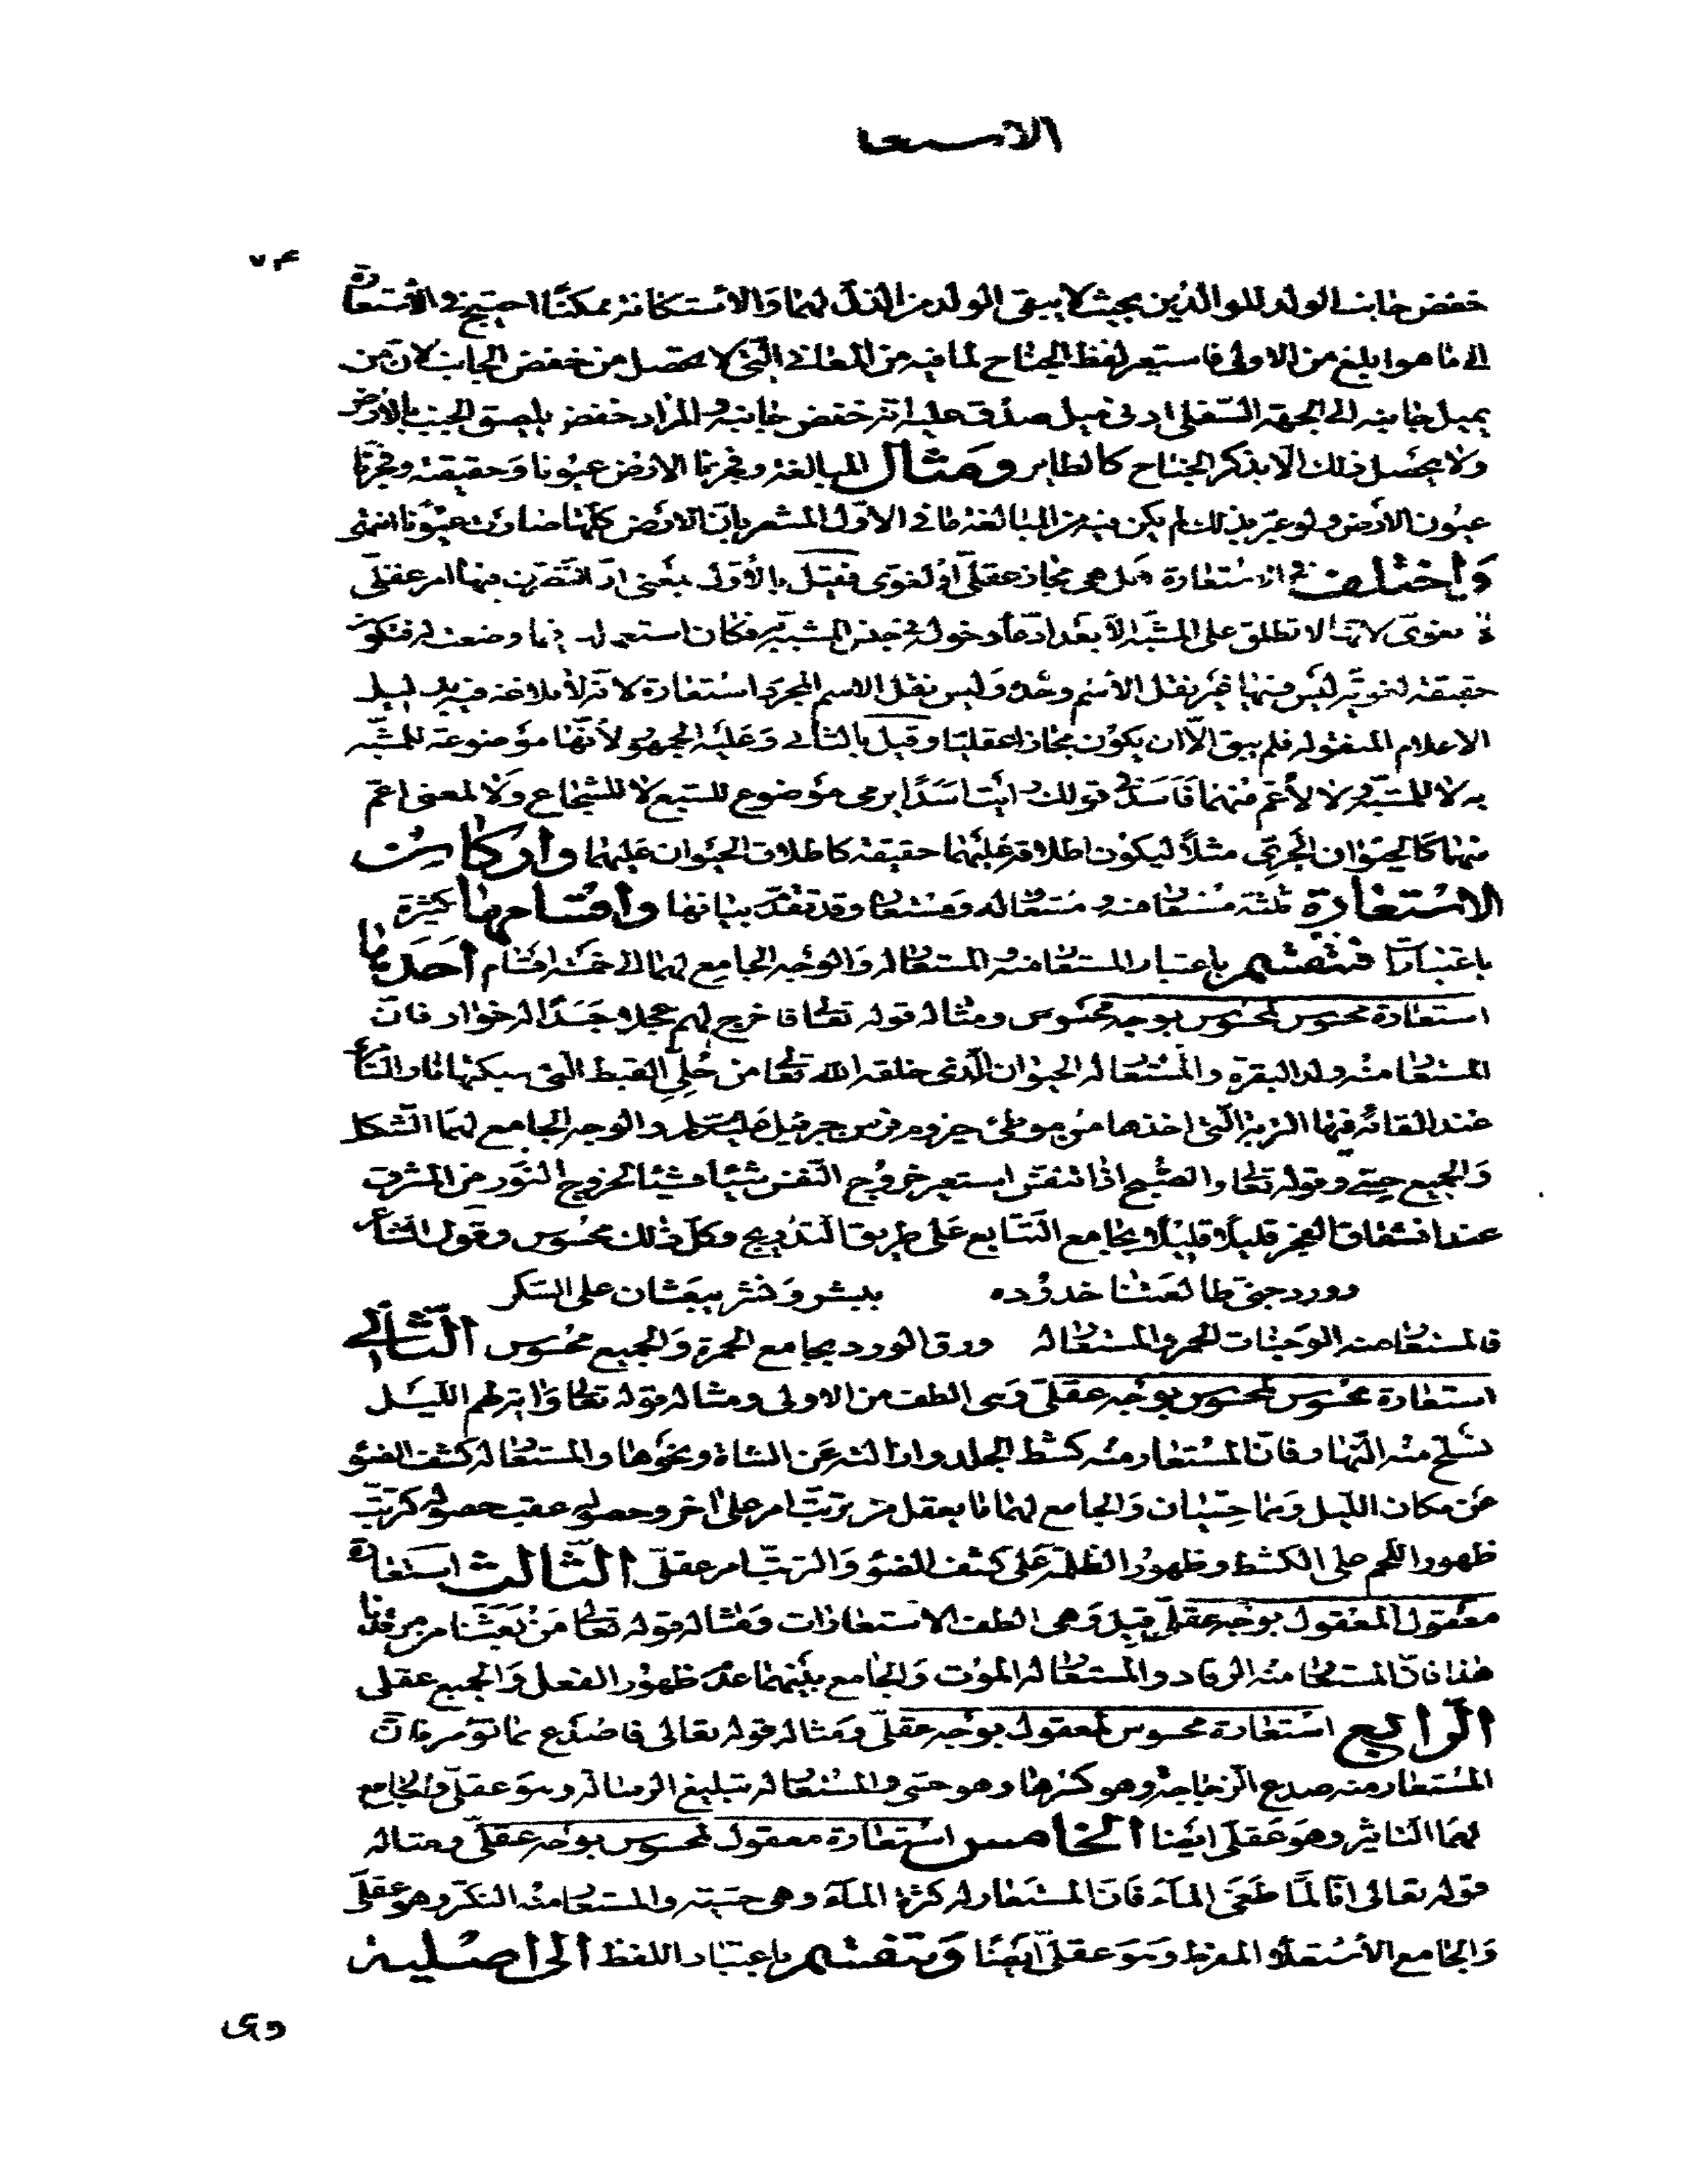 الاستعا
٧٤
خفض جانب الولد للوالدين بحيث لا يبقى الولد من الذل لهما والاستكانة ممكنا احتيج في الاستعارة
الى ما هو ابلغ من الاولى فاستعير لفظ الجناح لما فيه من المعاني التي لا تحصل من خفض الجانب لان من
يميل جانبه الى الجهة السفلى ادنى ميل صدق عليه انه خفض جانبه والمراد خفض يلصق الجنب بالارض
ولا يحصل ذلك الا بذكر الجناح كالطاير ومثال المبالغة وفجرنا الارض عيونا وحقيقته وفجرنا
عيون الارض ولو عبر بذلك لم يكن فيه من المبالغة ما في الاول المشعر بان الارض كلها صارت عيونا انتهى
واختلف في الاستعارة هل هي مجاز عقلي او لغوي فقيل بالاول بمعنى ان التصرف فيها امر عقلي
لا لغوي لانها لا تطلق على المشبه الا بعد ادعاء دخوله في جنس المشبه به فكان استعماله فيما وضعت له فتكون
حقيقة لغوية ليس فيها غير نقل الاسم وحده وليس نقل الاسم المجرد استعارة لانه لا بلاغة فيه بدليل
الاعلام المنقولة فلم يبق الا ان يكون مجازا عقليا وقيل بالثاني وعليه الجمهور لانها موضوعة للمشبه
به لا للمشبه ولا لاعم منهما فاسد في قولك رايت اسدا يرمي موضوع للسبع لا للشجاع ولا لمعنى اعم
منهما كالحيوان الجري مثلا ليكون اطلاقه عليهما حقيقة كاطلاق الحيوان عليهما واركان
الاستعارة ثلثة مستعار منه ومستعار له ومستعار وقد تقدم بيانها واقسامها كثيرة
باعتبارات فتنقسم باعتبار المستعار منه والمستعار له والوجه الجامع لهما الى خمسة اقسام احدها
استعارة محسوس لمحسوس بوجه محسوس ومثاله قوله تعالى فاخرج لهم عجلا جسدا له خوار فان
المستعار منه ولد البقرة والمستعار له الحيوان الذي خلقه الله تعالى من حلي القبط التي سبكتها نار السامري
عند القائه فيها التربة التي اخذها من موطئ حيزوم فرس جبرئيل عليه السلام والوجه الجامع لهما الشكل
والجميع حسي وقوله تعالى والصبح اذا تنفس استعير خروج النفس شيئا فشيئا لخروج النور من المشرق
عند انشقاق الفجر قليلا قليلا بجامع التتابع على طريق التدريج وكل ذلك محسوس وقول الشاعر
وورد جنى طالعتنا خدوده ببشر ونشر يبعثان على السكر
فالمستعار منه الوجنات الحمر والمستعار له ورق الورد بجامع الحمرة والجميع محسوس الثاني
استعارة محسوس لمحسوس بوجه عقلي وهي الطف من الاولى ومثاله قوله تعالى واية لهم الليل
نسلخ منه النهار فان المستعار منه كشط الجلد وازالته عن الشاة ونحوها والمستعار له كشف الضوء
عن مكان الليل وهما حسيان والجامع لهما ما يعقل من ترتب امر على اخر وحصوله عقب حصوله كترتب
ظهور اللحم على الكشط وظهور الظلمة على كشف الضوء والترتب امر عقلي الثالث استعارة
معقول لمعقول بوجه عقلي قيل وهي الطف الاستعارات ومثاله قوله تعالى من بعثنا من مرقدنا
هذا فان المستعار منه الرقاد والمستعار له الموت والجامع بينهما عدم ظهور الفعل والجميع عقلي
الرابع استعارة محسوس لمعقول بوجه عقلي ومثاله قوله تعالى فاصدع بما تؤمر فان
المستعار منه صدع الزجاجة وهو كسرها وهو حسي والمستعار له تبليغ الرسالة وهو عقلي والجامع
لهما التاثير وهو عقلي ايضا الخامس استعارة معقول لمحسوس بوجه عقلي ومثاله
قوله تعالى انا لما طغى الماء فان المستعار له كثرة الماء وهي حسية والمستعار منه التكبر وهو عقلي
والجامع الاستعلاء المفرط وهو عقلي ايضا وتنقسم باعتبار اللفظ الى اصلية
وهى